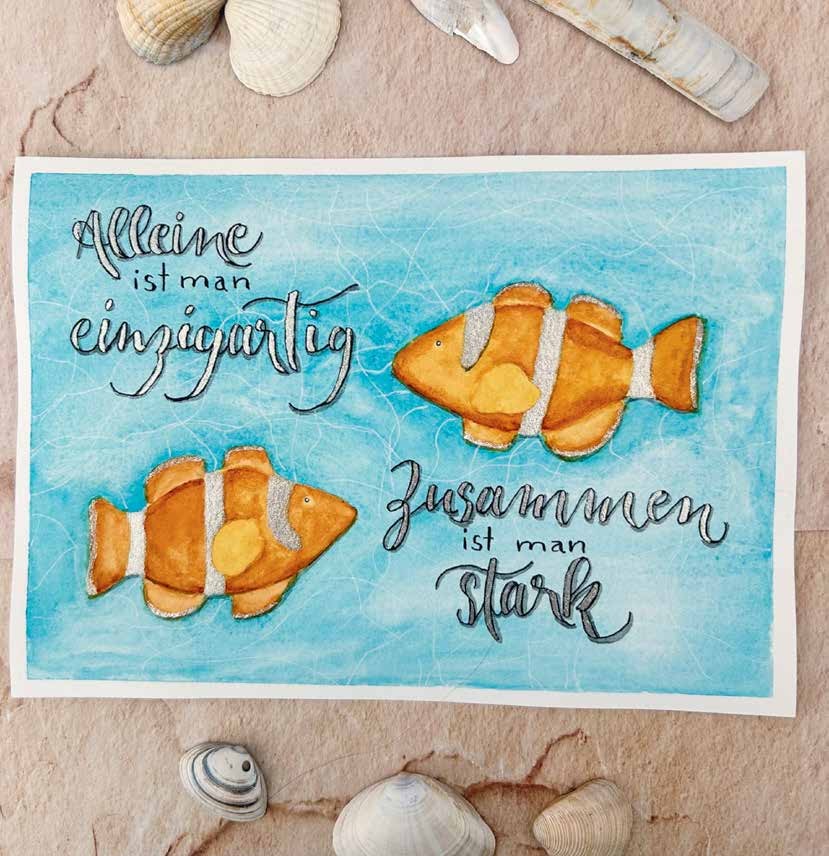 Alleine
ist man
einzigartig
Zusammen
ist man
stark